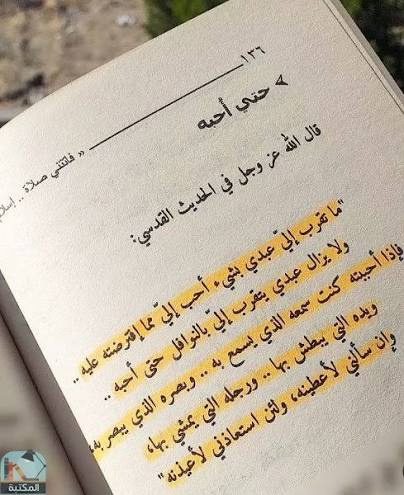 ١٣٦
« فاتتني صلاة ..
> حتى أحبه
قال الله عز وجل في الحديث القدسي:
"ما تقرب إليّ عبدي بشيء أحب إليّ مما إفترضته عليه ..
ولا يزال عبدي يتقرب إليّ بالنوافل حتى أحبه ..
فإذا أحببته كنت سمعه الذي يسمع به .. وبصره الذي يبصر به،
ويده التي يبطش بها .. ورجله التي يمشي بها،
وإن سألني لأعطينه، ولئن استعاذني لأعيذنه"
المكتبة